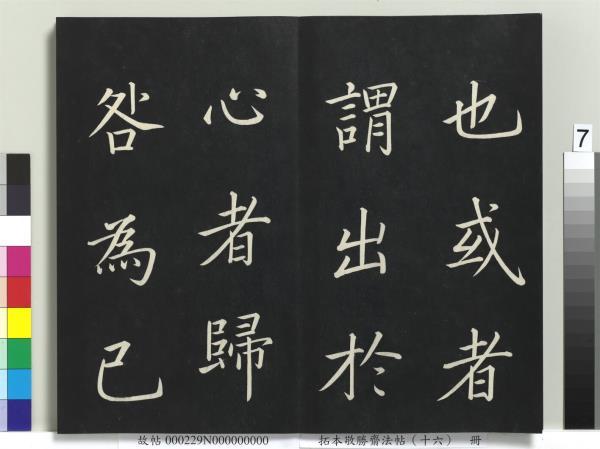 也或者
謂出於
心者歸
咎為已
7
故帖 000229N000000000
拓本敬勝齋法帖(十六) 冊